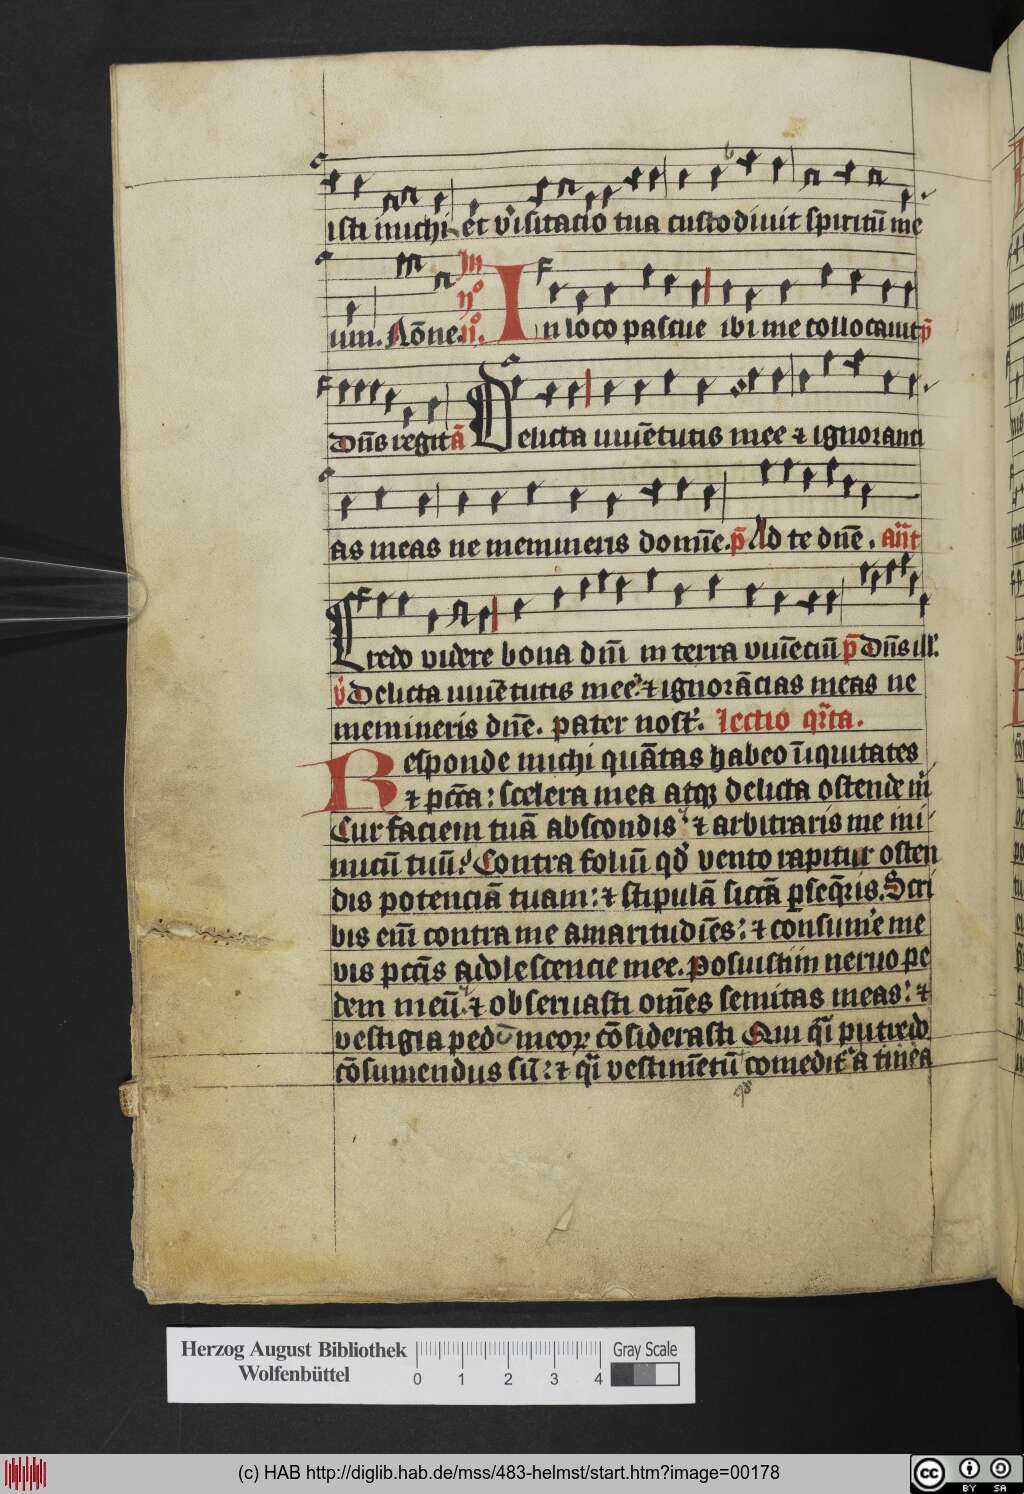 isti michi et visitacio tua custodiuit spiritū me
um. Nōne. In ijo no. In loco pascue ibi me collocauit p̄
Dn̄s regit ā Delicta iuuētutis mee ⁊ ignoranci
as meas ne memineris domn̄e. p̄ Ad te dn̄e. an̄t
Credo videre bona dn̄i in terra viuēciū p̄ Dn̄s ill'.
v̄ Delicta iuuētutis mee: ⁊ ignorācias meas ne
memineris dn̄e. pater nost'. lectio qr̄ta.
Responde michi quātas habeo īiquitates
⁊ pctā: scelera mea atqꝫ delicta ostende m̄
Cur faciem tuā abscondis: ⁊ arbitraris me ini
micū tuū? Contra foliū qd' vento rapitur osten
dis potenciā tuam: ⁊ stipulā siccā ꝑseq̄ris. Scri
bis em̄ contra me amaritudīes: ⁊ consumē me
vis pctīs adolescencie mee. Posuisti in neruo pe
dem meū: ⁊ obseruasti om̄es semitas meas: ⁊
vestigia pedū meoꝝ cōsiderasti Qui q̄i putredo
cōsumendus sū: ⁊ q̄i vestimētū comedit' a tinea
Herzog August Bibliothek
Wolfenbüttel
0 1 2 3 4
Gray Scale
(c) HAB http://diglib.hab.de/mss/483-helmst/start.htm?image=00178
cc BY SA